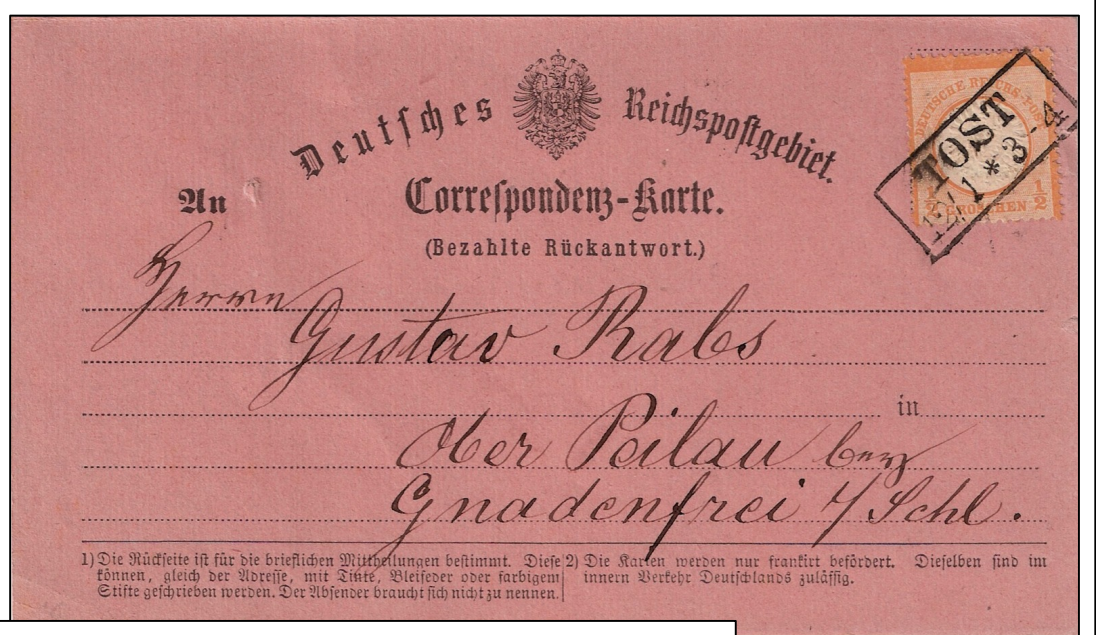 Deutsches Reichspostgebiet.
Correspondenz-Karte.
(Bezahlte Rückantwort.)
DEUTSCHE REICHS-POST
1/2 GROSCHEN 1/2
TOST
12 1 * 3-4
An
Herrn
Gustav Rabs
in
Ober Peilau bey
Gnadenfrei i/ Schl.
1) Die Rückseite ist für die brieflichen Mittheilungen bestimmt. Diese
können, gleich der Adresse, mit Tinte, Bleifeder oder farbigem
Stifte geschrieben werden. Der Absender braucht sich nicht zu nennen.
2) Die Karten werden nur frankirt befördert. Dieselben sind im
innern Verkehr Deutschlands zulässig.